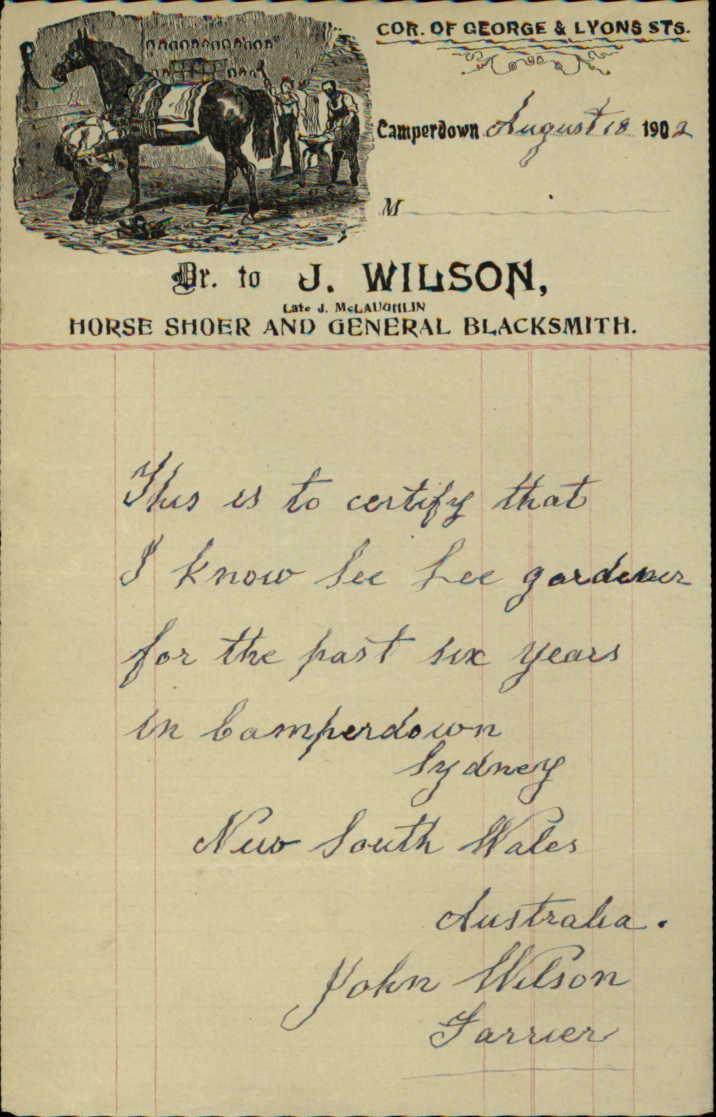 COR. OF GEORGE & LYONS STS.
Camperdown August 18 1902
M
Dr. to J. WILSON,
Late J. McLAUGHLIN
HORSE SHOER AND GENERAL BLACKSMITH.
This is to certify that
I know See Lee gardener
for the past six years
in Camperdown
Sydney
New South Wales
Australia.
John Wilson
Farrier